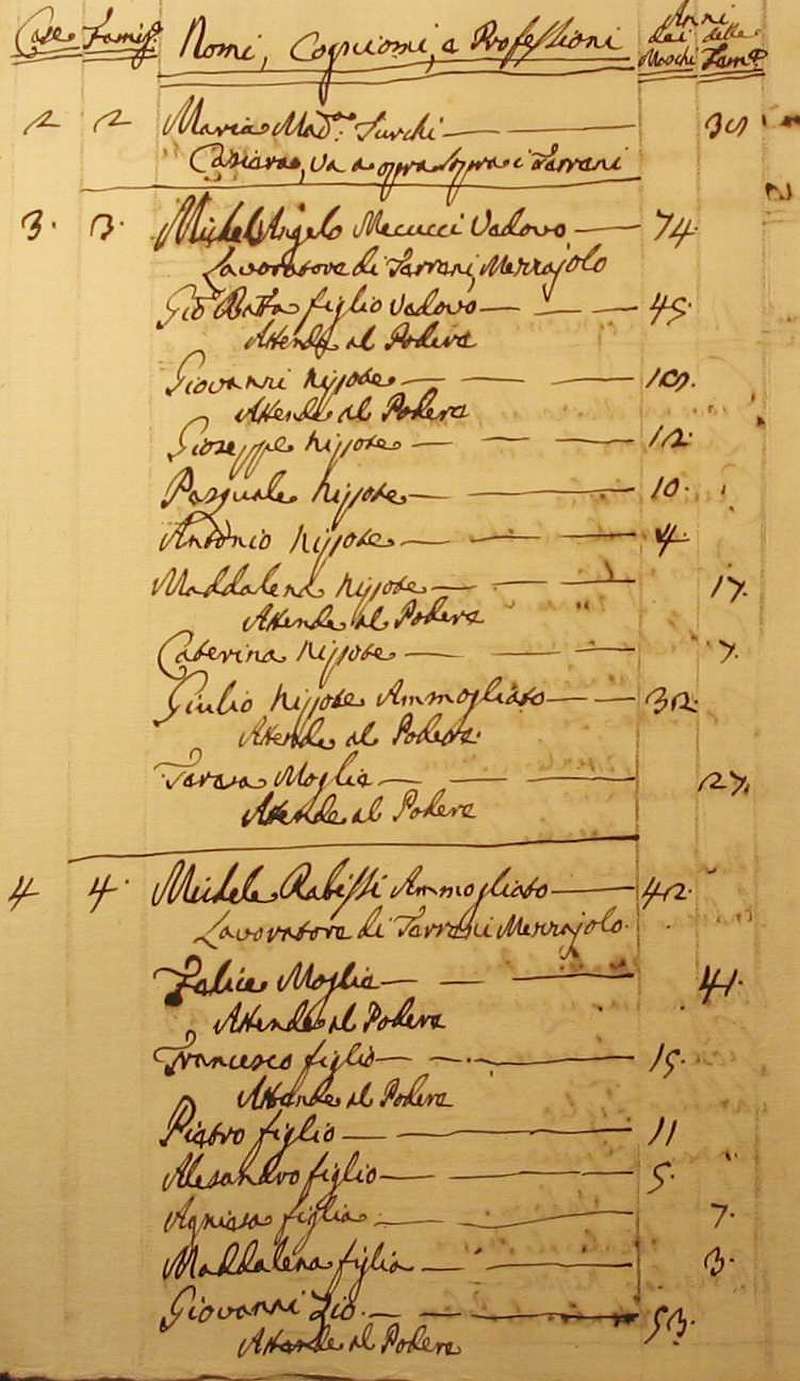 Case Famigᵉ Nomi, Cognomi, e Professioni Anni dei Maschi delle Femᵉ
2 2 Maria Madᵃ Turchi 39
va a opra sopra i Terreni
3. 3. Michel Angelo Mecucci Vedovo 74
Lavoratore di Terreni Mezzajolo
Gio Batta figlio Vedovo 45.
Attende al Podere
Giovanni Nipote 19.
Attende al Podere
Gioseppe Nipote 12.
Pasquale Nipote 10.
Antonio Nipote 4.
Maddalena Nipote 17.
Attende al Podere
Caterina Nipote 7.
Giulio Nipote Ammogliato 32.
Attende al Podere
Teresa Moglie 27.
Attende al Podere
4 4. Michele Rabissi Ammogliato 42.
Lavoratore di Terreni Mezzajolo.
Felice Moglie 41.
Attende al Podere
Francesco figlio 15.
Attende al Podere
Pietro figlio 11
Alesandro figlio 5.
Agniesa figlia 7.
Maddalena figlia 3.
Giovanni Zio 53.
Attende al Podere